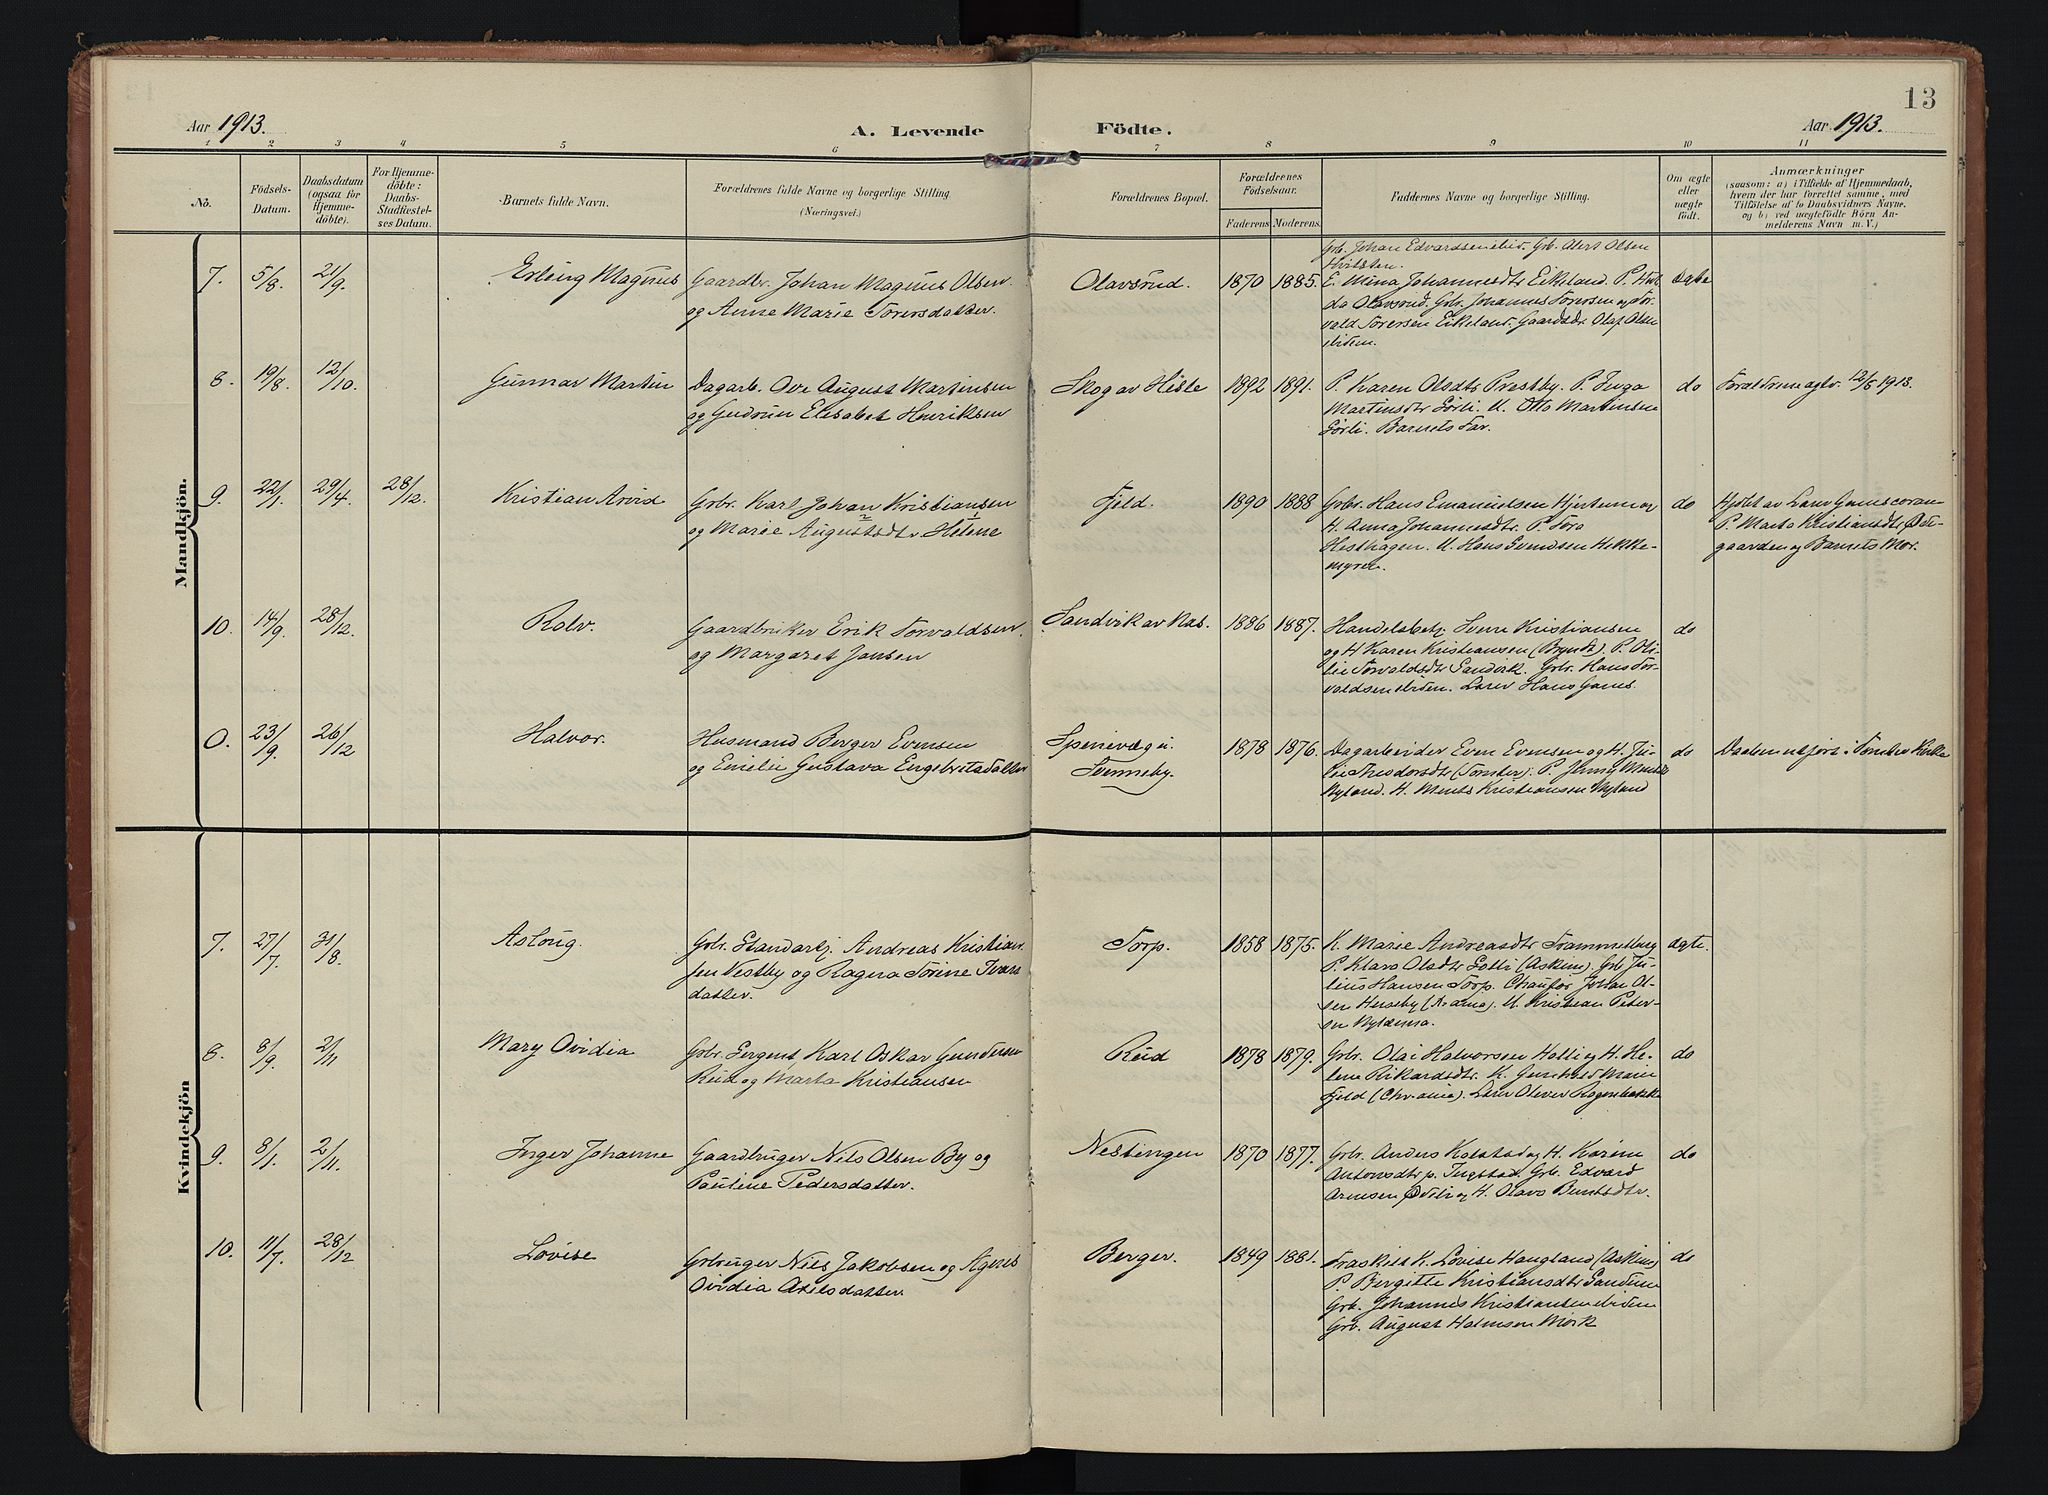 13
Aar 1913.
A. Levende Födte.
Aar 1913.
1 2 3 4 5 6 7 8 9 10 11
No.
Födsels-
Datum.
Daabsdatum
(ogsaa for
Hjemme-
döbte).
For Hjemme-
döbte:
Daabs-
Stadfæstel-
ses Datum.
Barnets fulde Navn.
Forældrenes fulde Navne og borgerlige Stilling
(Næringsvei.)
Forældrenes Bopæl.
Forældrenes
Födselsaar.
Faderens Moderens.
Faddernes Navne og borgerlige Stilling.
Om ægte
eller
uægte
født.
Anmærkninger
(saasom: a) i Tilfælde af Hjemmedaab,
hvem der har forrettet samme, med
Tilföielse af to Daabsvidners Navne,
og b) ved uægtefödte Börn An-
melderens Navn m. V.)
Mandkjön.
7. 5/8. 21/9. Erling Magnus
Gaardbr. Johan Magnus Olsen
og Anne Marie Torersdatter.
Olavsrud. 1870 1885.
Grb. Johan Edvardsen ibid. Grb. Olert Olsen
Hvitsten.
E. Mina Johannesdtr Eikeland. P. Hul-
da Olavsrud. Grb. Johannes Torersen og Tor-
vald Torersen Eikeland. Gaardbr. Olaf Olsen
ibidem.
Ægte
8. 19/8. 12/10. Gunnar Martin
Dagarb. Ove August Martinsen
og Gudrun Elisabet Henriksen
Skog av Hisle 1892 1891.
P. Karen Olsdtr Prestby. P. Inga
Martinsdtr Sørli. U. Otto Martinsen
Sørli. Barnets Far.
do
Forældrene agtv. 12/5 1913.
9. 22/1. 29/4. 28/12. Kristian Arvid
Grbr. Karl Johan Kristiansen
og Marie Augustsdtr Helene
Fjeld. 1890 1888
Grbr. Hans Emanuelsen Hjertum og
H. Anna Johannesdtr. P. Tora
Hesthagen. U. Hans Svendsen Hekke-
myren.
do
Hjdbt av Lærer Gaus coran
P. Marta Kristiansdtr Øst-
gaarden og Barnets Mor.
10. 14/9. 28/12. Rolv.
Gaardbruker Erik Torvaldsen
og Margaret Jansen
Sandvik av Nas. 1886 1887.
Handelsbetj. Sven Kristiansen
og H Karen Kristiansen (Brynd). P. Oli-
lie Torvaldsdtr Sandvik. Grbr. Hans Tor-
valdsen ibidem. Lærer Hans Gaus.
do
0. 23/9. 26/12 Halvor.
Husmand Berger Evensen
og Emelie Gustava Engebretsdatter
Spenevæg u.
Svenneby.
1878 1876.
Dagarbeider Even Evensen og H. Ju-
lie Theodorsdtr (Tomter). P. Jenny
Nyland. H. Ments Kristiansen Nyland
do
Daaben utført i Tomter Kirke
Kvindekjön
7. 27/7. 31/8. Aslaug.
Grbr. Standarkj. Andreas Kristian
sen Nestby og Ragna Torine Ivars
datter.
Torp. 1858 1875.
K. Marie Andreasdtr Trammeborg
P. Klara Olsdtr Solli (Askim). Grb. Ju-
lius Hansen Torp. Chaufør Johan Ol-
sen Herseby (Kr.ania). U. Kristian Peter-
sen Nylænna.
ægte.
8. 8/9. 2/11 Mary Ovidia
Grbr. Sergent Karl Oskar Gundersen
Rud og Marta Kristiansen
Rud 1878 1879.
Grbr. Olai Halvorsen Holli og H. He-
lene Rikardsdtr. K. Gunhild Marie
Fjeld (Chr.ania). Lærer Oliver Rogenbakke
do
9. 8/1. 2/11. Inger Johanne
Gaardbruger Nils Olsen By og
Pauline Pedersdatter.
Nestingen 1870 1877.
Grbr. Anders Kolstad og H. Karine
Antonsdtr p. Ingstad. Grb. Edvard
Arnesen Ødeli og H. Olava Berntsdtr.
do
10. 11/7. 28/12 Lovise
Grbruger Nils Jakobsen og Agnes
Ovidia Axelsdatter
Berger. 1849 1881.
Fraskilt K. Lovise Haugland (Askim)
P. Bergitte Kristiansdtr Sandum
Grb. Johannes Kristiansen ibidem
Grb. August Halmsen Mørk
do